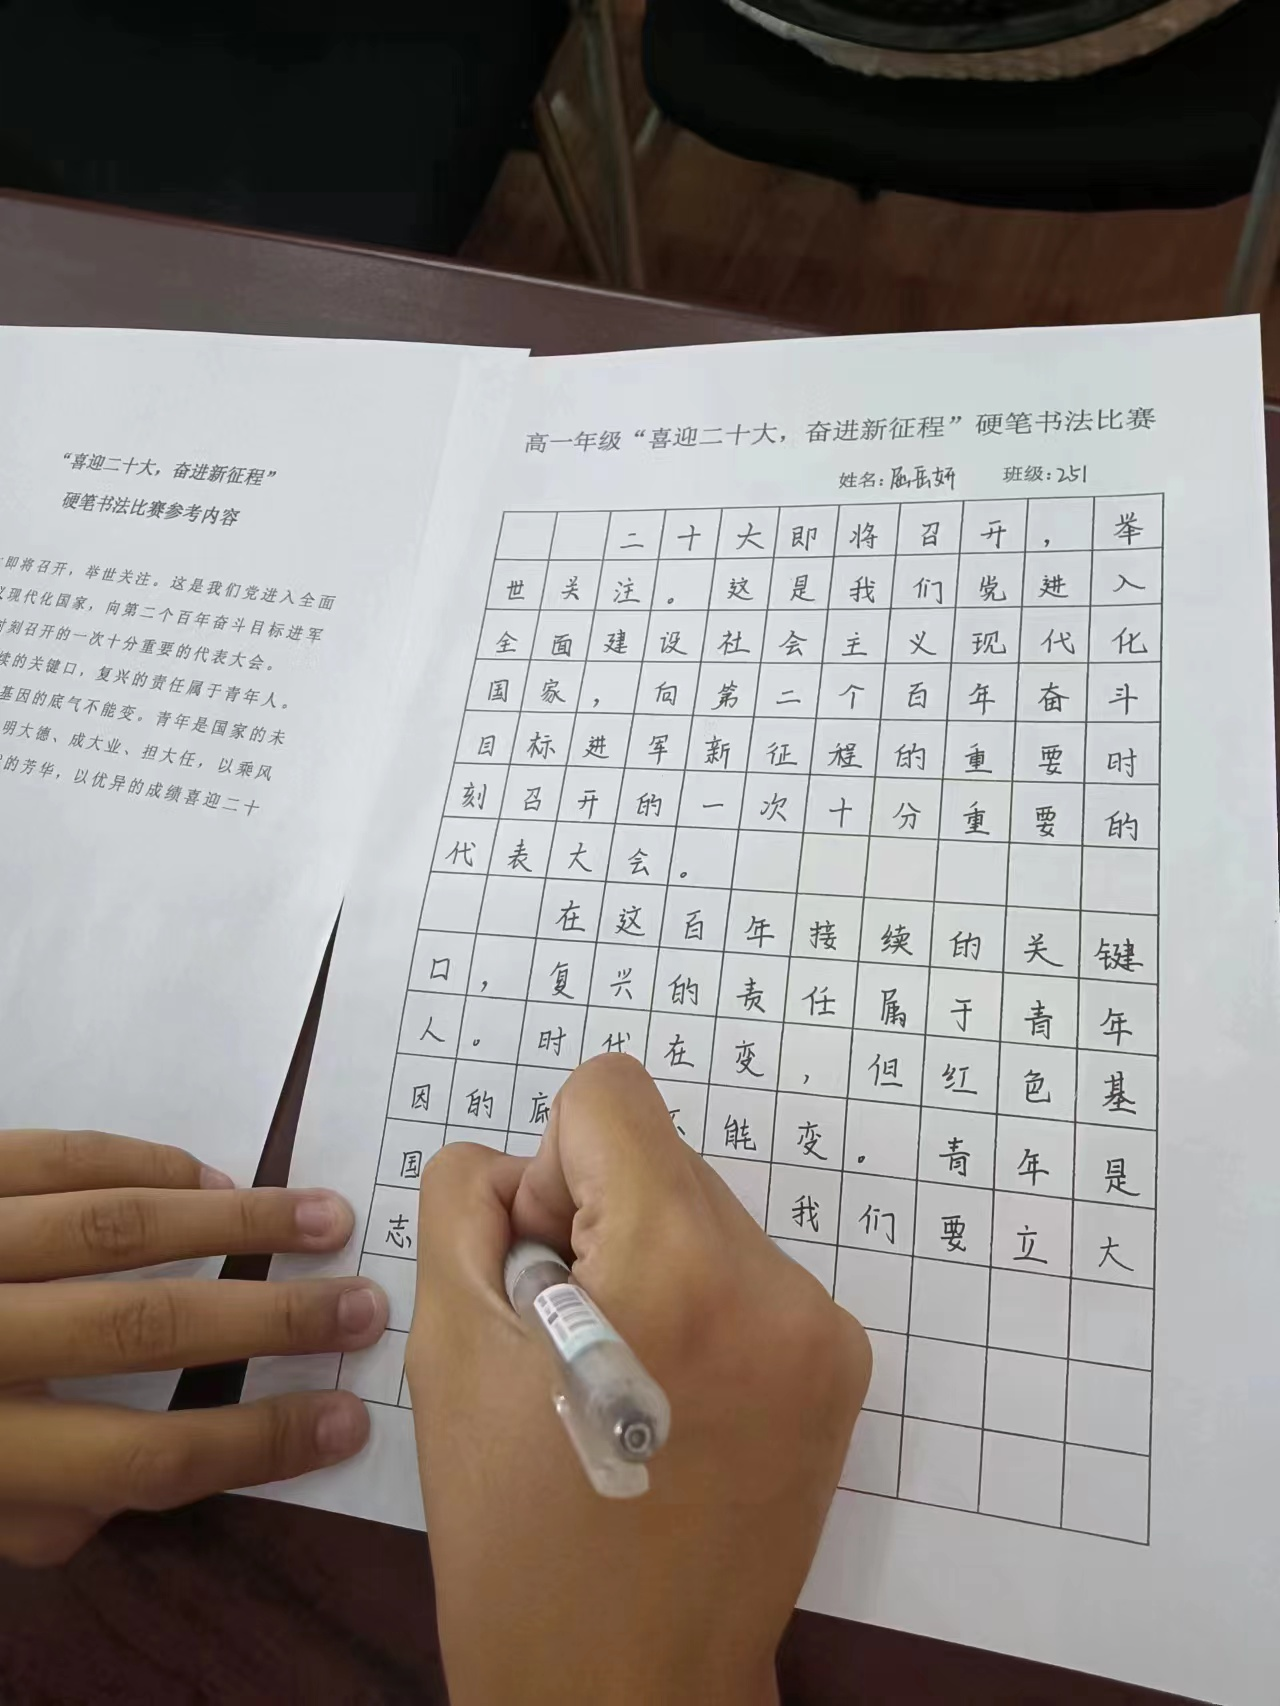 “喜迎二十大，奋进新征程”
硬笔书法比赛参考内容
即将召开，举世关注。这是我们党进入全面
现代化国家，向第二个百年奋斗目标进军
时刻召开的一次十分重要的代表大会。
续的关键口，复兴的责任属于青年人。
基因的底气不能变。青年是国家的未
明大德、成大业、担大任，以乘风
的芳华，以优异的成绩喜迎二十
高一年级“喜迎二十大，奋进新征程”硬笔书法比赛
姓名：屈岳妍 班级：251
二十大即将召开，举
世关注。这是我们党进入
全面建设社会主义现代化
国家，向第二个百年奋斗
目标进军新征程的重要时
刻召开的一次十分重要的
代表大会。
在这百年接续的关键
口，复兴的责任属于青年
人。时代在变，但红色基
因的底不能变。青年是
国
志我们要立大